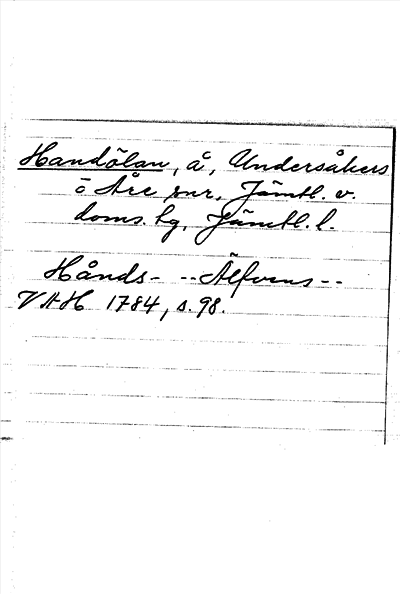 Handölan, å, Undersåkers
o Åre snr, Jämtl. v.
doms. hg, Jämtl. l.
Hånds- -- Älfvens --
VAH 1784, s. 98.